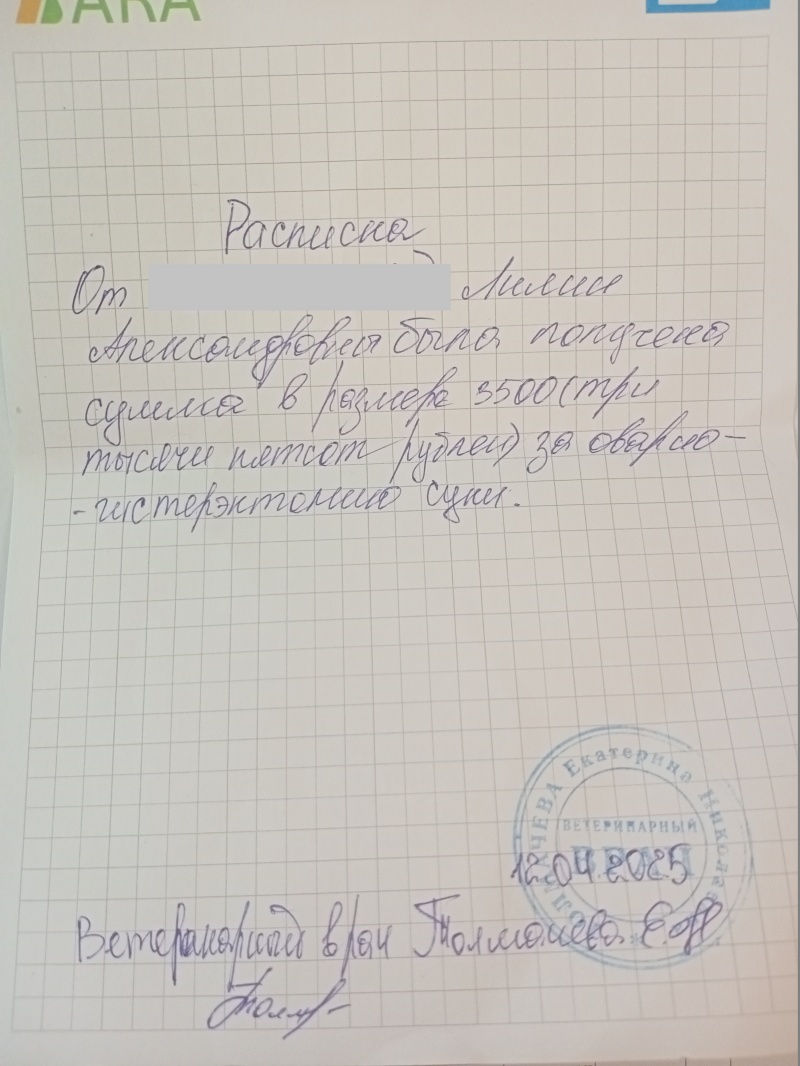 АКА
Расписка
От Лилии
Александровны была получена
сумма в размере 3500 (три
тысячи пятсот рублей) за оварио-
-гистерэктомию суки.
ЧЕВА Екатерина Никола
ВЕТЕРИНАРНЫЙ
ВРАЧ
12.04.2025
Ветеринарный врач Толмачева Е.Н